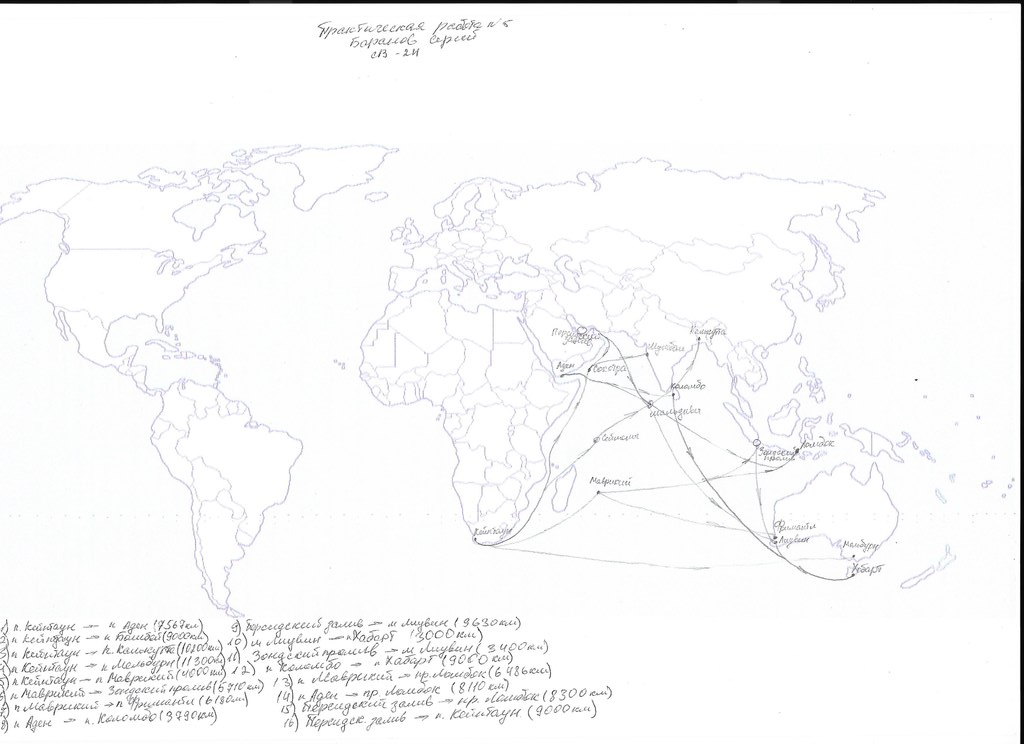 Практическая работа №5
Баранов Сергей
СВ-24
Калькутта
Персидский залив
Мумбаи
Аден
Сокотра
Коломбо
Мальдивы
Сейшелы
Ломбок
Зондский пролив
Маврикий
Кейптаун
Фримантл
Лиувин
Мельбурн
Хобарт
1) п. Кейптаун → п Аден (7569км)
2) п Кейптаун → п Бомбей (9000км)
3) п Кейптаун → п. Калькутта (10200км)
4) п Кейптаун → п Мельбурн (11300км)
5) п Кейптаун → п Маврикий (4000км)
6) п Маврикий → Зондский пролив (5710км)
7) п Маврикий → п Фримантл (6180км)
8) п Аден → п. Коломбо (3790км)
9) Персидский залив → м Лиувин (9630км)
10) м Лиувин → п Хобарт (3000км)
11) Зондский пролив → м Лиувин (3400км)
12) п Коломбо → п Хобарт (9060км)
13) п Маврикий → пр. Ломбок (6486км)
14) п Аден → пр. Ломбок (8110км)
15) Персидский залив → пр. Ломбок (8300км)
16) Персидск. залив → п. Кейптаун (9000км)